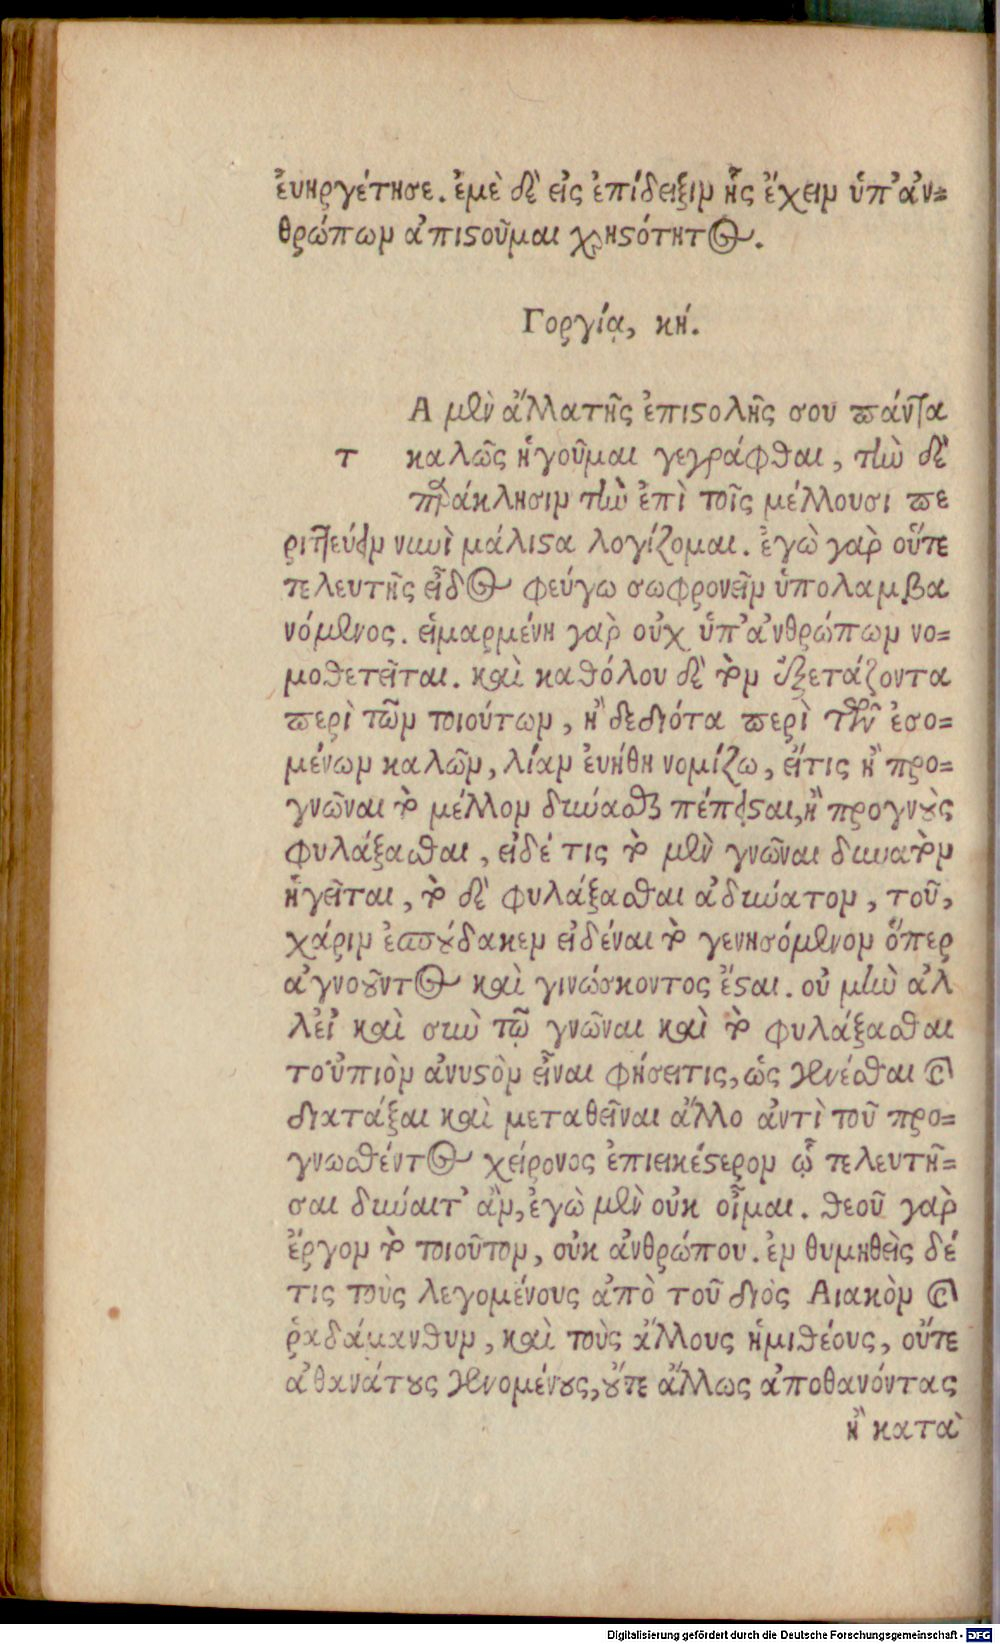 ἐυηργέτησε. ἐμὲ δὲ εἰς ἐπίδειξιν ἧς ἔχειν ὑπ' ἀν=
θρώπων ἀπιστοῦμαι χρηστότητος.
Γοργίᾳ, κή.
Α μὲν ἄλλα τῆς ἐπιστολῆς σου πάντα
τ καλῶς ἡγοῦμαι γεγράφθαι, τὴν δὲ
παράκλησιν τὴν ἐπὶ τοῖς μέλλουσι πε
ριττεύειν νυνὶ μάλιστα λογίζομαι. ἐγὼ γὰρ οὔτε
τελευτῆς εἶδος φεύγω σωφρονεῖν ὑπολαμβα
νόμενος. εἱμαρμένη γὰρ οὐχ ὑπ' ἀνθρώπων νο=
μοθετεῖται. καὶ καθόλου δὲ τὸν ἐξετάζοντα
περὶ τῶν τοιούτων, ἢ δεδιότα περὶ τῶν ἐσο=
μένων καλῶν, λίαν ἐυήθη νομίζω, εἴτις ἢ προ=
γνῶναι τὸ μέλλον δύνασθαι πέπεισται, ἢ προγνοὺς
φυλάξασθαι, εἰδέ τις τὸ μὲν γνῶναι δυνατὸν
ἡγεῖται, τὸ δὲ φυλάξασθαι ἀδύνατον, τοῦ,
χάριν ἐσπούδακεν εἰδέναι τὸ γενησόμενον ὅπερ
ἀγνοοῦντος καὶ γινώσκοντος ἔσται. οὐ μὴν ἀλ
λ' εἰ καὶ σὺν τῷ γνῶναι καὶ τὸ φυλάξασθαι
τοὐπιὸν ἀνυστὸν εἶναι φήσειτις, ὡς γενέσθαι καὶ
διατάξαι καὶ μεταθεῖναι ἄλλο ἀντὶ τοῦ προ=
γνωσθέντος χείρονος ἐπιεικέστερον ᾧ τελευτῆ=
σαι δύναιτ' ἂν, ἐγὼ μὲν οὐκ οἶμαι. θεοῦ γὰρ
ἔργον τὸ τοιοῦτον, οὐκ ἀνθρώπου. ἐν θυμηθεὶς δέ
τις τοὺς λεγομένους ἀπὸ τοῦ διὸς Αἰακὸν καὶ
ῥαδάμανθυν, καὶ τοὺς ἄλλους ἡμιθέους, οὔτε
ἀθανάτους γενομένους, οὔτε ἄλλως ἀποθανόντας
ἢ κατὰ
Digitalisierung gefördert durch die Deutsche Forschungsgemeinschaft - DFG